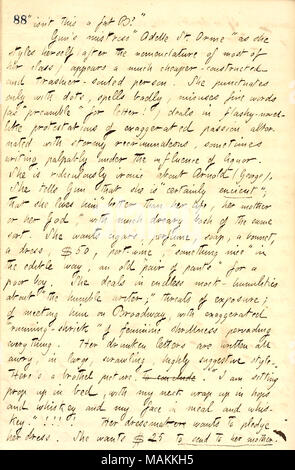 88 "isn't this a fat B?"
Gun's mistress "Odelle St. Orme" as she
styles herself after the nomenclature of most of
her class, appears a much cheaper-constructed
and trashier-souled person. She punctuates
only with dots, spells badly, misuses fine words
(as "preamble" for letter) deals in flashy-novel-
like protestations of exaggerated passion alter-
nated with stormy recriminations, sometimes
writing palpably under the influence of liquor.
She is ridiculously ironic about Arnold (George).
She tells Gun that she is "certainly encient",
that she loves him "better than her life, her mother
or her God," with much dreary trash of the same
sort. She wants cigars, perfume, soap, a bonnet,
a dress, $50, port-wine, "something nice" in
the edible way, "an old pair of pants" for a
poor boy. She deals in endless mock-humilities
about "the humble writer;" threats of exposure;
of meeting him on Broadway, with exaggerated
"running-shriek" of feminine shrillness pervading
everything. Her drunken letters are written all
awry, in large, scrawling, highly suggestive style.
Here's a brothel picture. To conclude. "I am sitting
prop up in bed, with my neck wrap up in hops
and whiskey and my face in meal and whis-
key." !!!! Her dressmaker wants to pledge
her dress. She wants $25 to send to her mother.
alamy
Image ID: MAKKH5
www.alamy.com